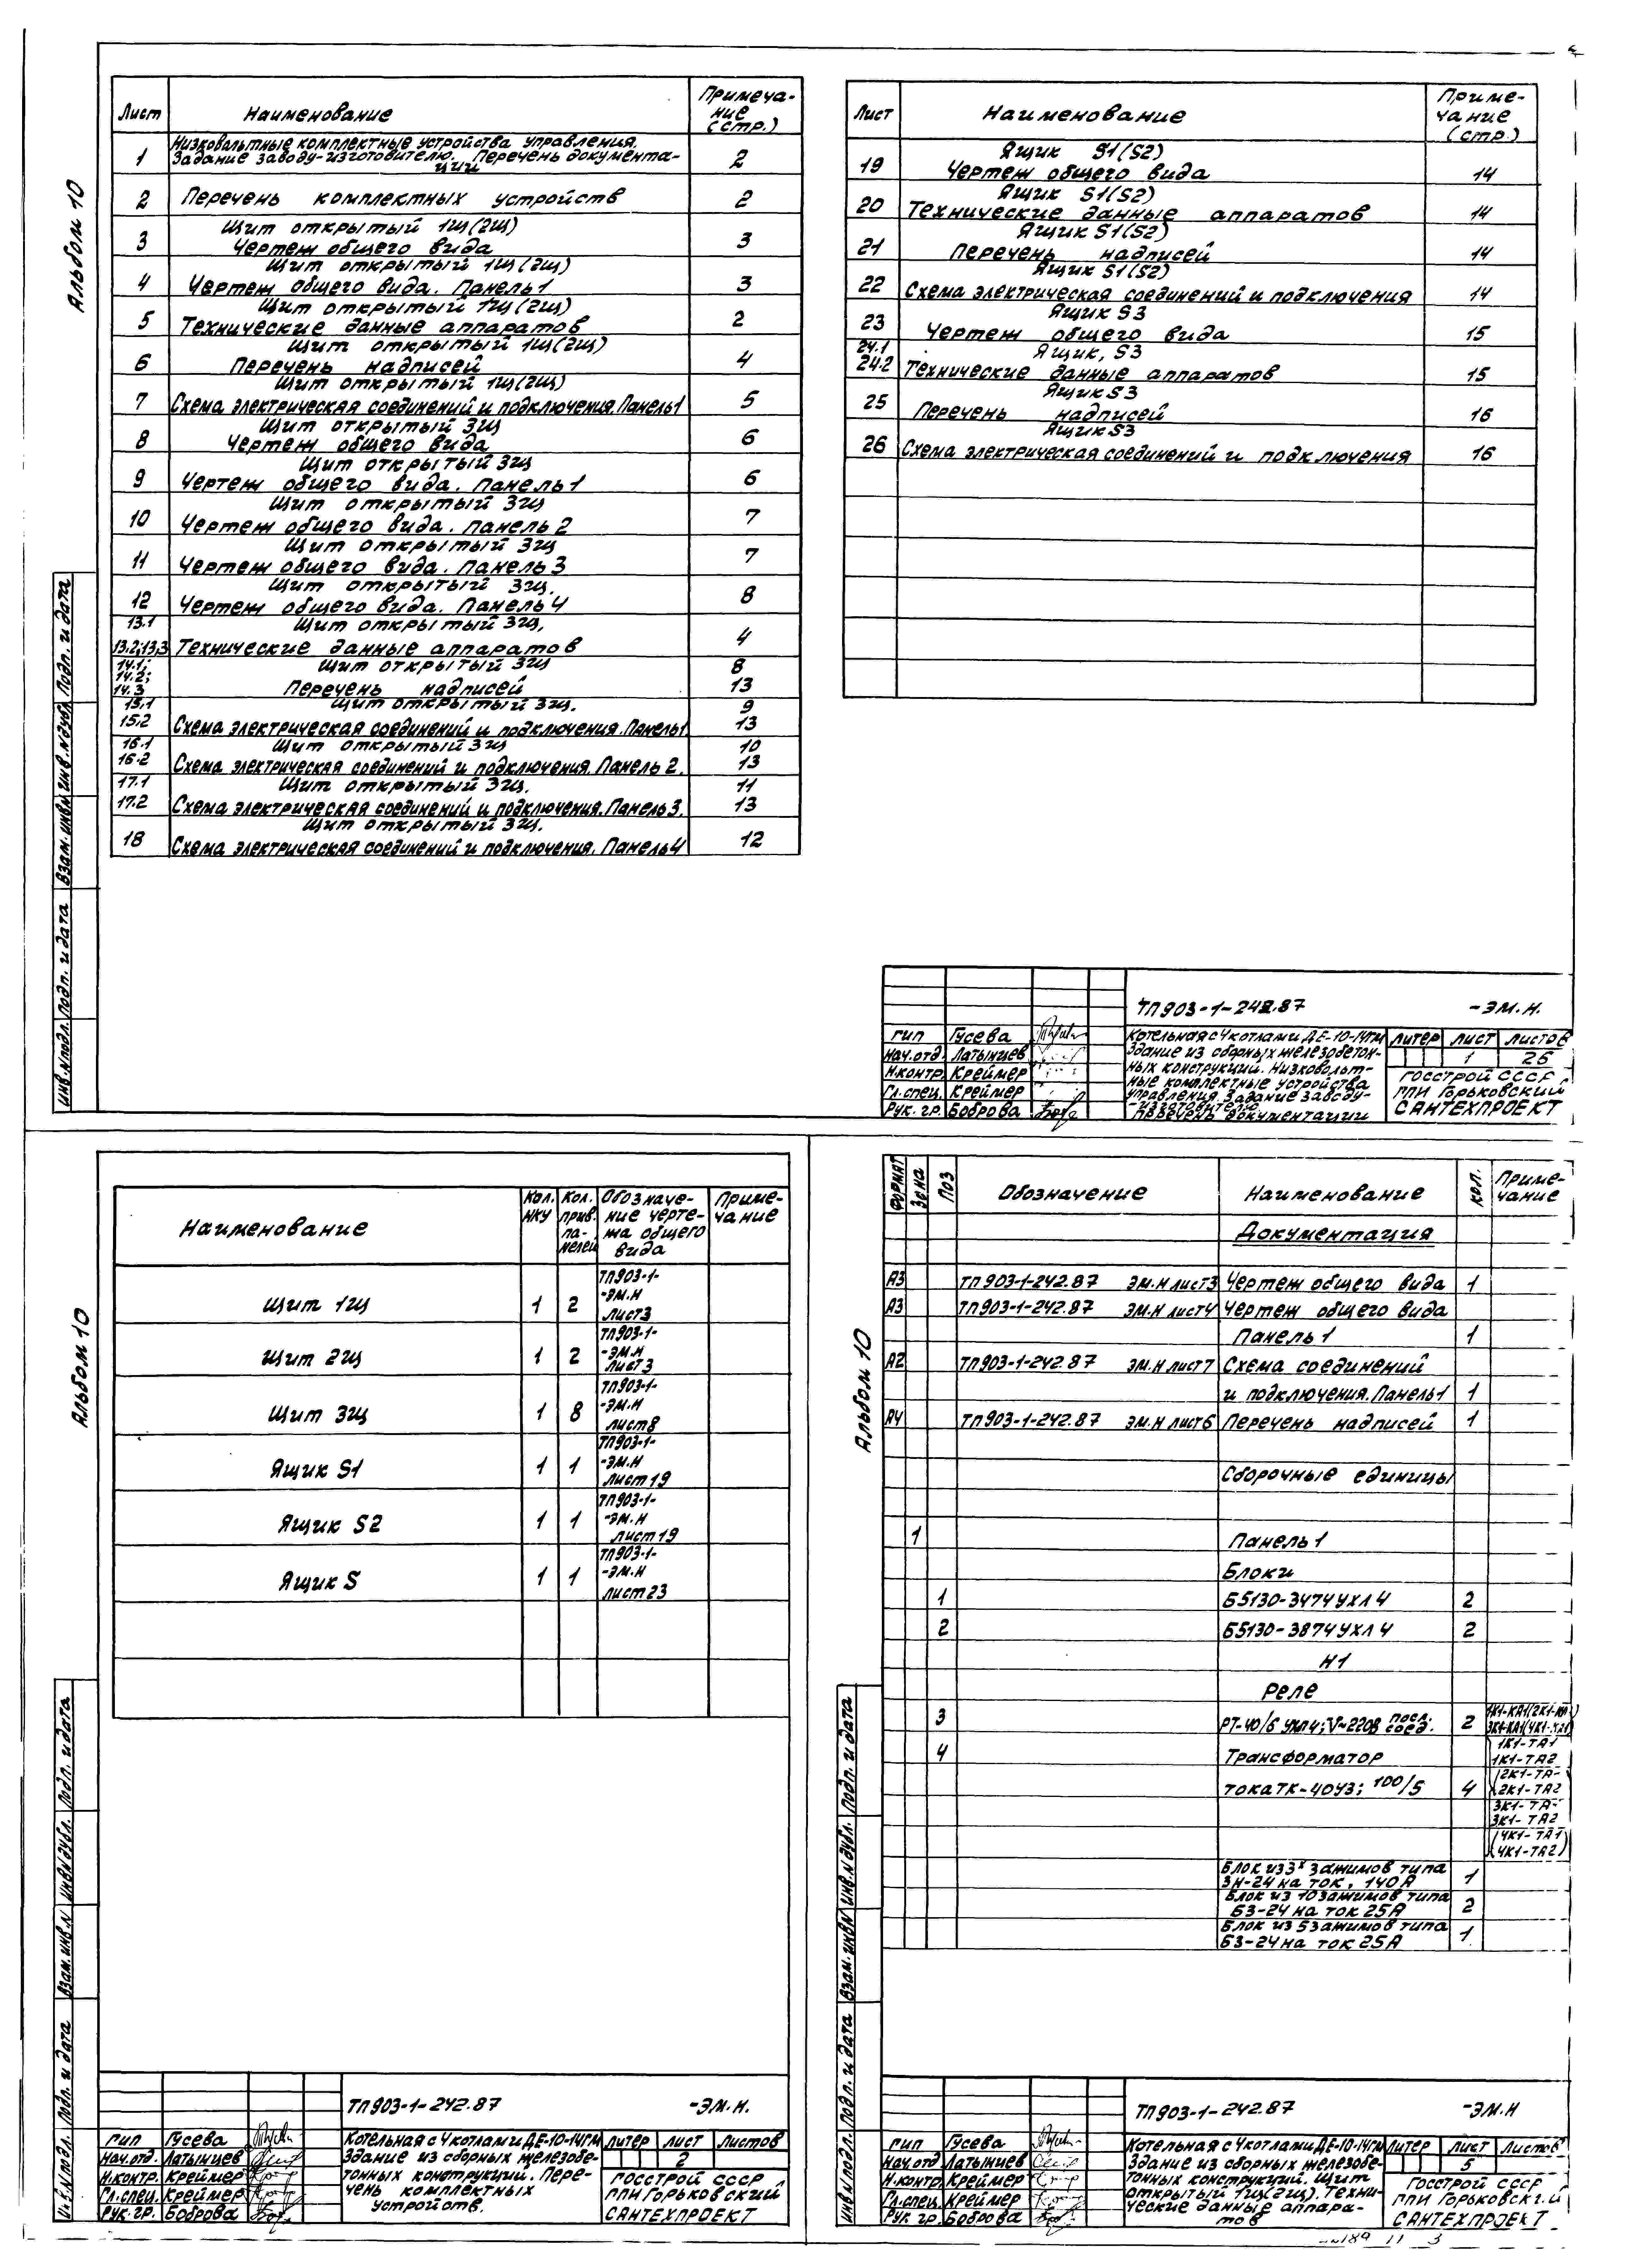 Альбом 10
Лист Наименование Примеча-
ние
(стр.)
1 Низковольтные комплектные устройства управления.
Задание заводу-изготовителю. Перечень документа-
ции 2
2 Перечень комплектных устройств 2
Щит открытый 1щ(2щ)
3 Чертеж общего вида 3
Щит открытый 1щ(2щ)
4 Чертеж общего вида. Панель 1 3
Щит открытый 1щ(2щ)
5 Технические данные аппаратов 2
Щит открытый 1щ(2щ)
6 Перечень надписей 4
Щит открытый 1щ(2щ)
7 Схема электрическая соединений и подключения. Панель 1 5
Щит открытый 3щ
8 Чертеж общего вида 6
Щит открытый 3щ
9 Чертеж общего вида. Панель 1 6
Щит открытый 3щ
10 Чертеж общего вида. Панель 2 7
Щит открытый 3щ
11 Чертеж общего вида. Панель 3 7
Щит открытый 3щ.
12 Чертеж общего вида. Панель 4 8
13.1 Щит открытый 3щ,
13.2;13,3 Технические данные аппаратов 4
14.1; Щит открытый 3щ 8
14.2;
14.3 Перечень надписей 13
15.1 Щит открытый 3щ. 9
15.2 Схема электрическая соединений и подключения. Панель 1 13
16.1 Щит открытый 3щ 10
16.2 Схема электрическая соединений и подключения. Панель 2. 13
17.1 Щит открытый 3щ. 11
17.2 Схема электрическая соединений и подключения. Панель 3. 13
Щит открытый 3щ.
18 Схема электрическая соединений и подключения. Панель 4 12
Лист Наименование Приме-
чание
(стр.)
Ящик S1(S2)
19 Чертеж общего вида 14
Ящик S1(S2)
20 Технические данные аппаратов 14
Ящик S1(S2)
21 Перечень надписей 14
Ящик S1(S2)
22 Схема электрическая соединений и подключения 14
Ящик S3
23 Чертеж общего вида 15
24.1 Ящик, S3
24.2 Технические данные аппаратов 15
Ящик S3
25 Перечень надписей 16
Ящик S3
26 Схема электрическая соединений и подключения 16
Инв.№подл. Подп. и дата Взам. инв№ Инв.№дубл Подп. и дата
ТП903-1-242.87 -ЭМ.Н.
ГИП Гусева
Нач.отд. Латынцев
Н.контр. Креймер
Гл.спец. Креймер
Рук. гр. Боброва
Котельная с 4 котлами ДЕ-10-14ГМ
Здание из сборных железобетон-
ных конструкций. Низковольт-
ные комплектные устройства
управления. Задание заводу-
-изготовителю.
Перечень документации
Литер Лист Листов
1 26
Госстрой СССР
ГПИ Горьковский
САНТЕХПРОЕКТ
Альбом 10
Наименование Кол. НКУ Кол. прив. па-нелей Обозначе-ние черте-жа общего вида Приме-чание
Щит 1щ 1 2 ТП903-1-
-ЭМ.Н
лист3
Щит 2щ 1 2 ТП903-1-
-ЭМ.Н
лист 3
Щит 3щ 1 8 ТП903-1-
-ЭМ.Н
лист8
Ящик S1 1 1 ТП903-1-
-ЭМ.Н
лист 19
Ящик S2 1 1 ТП903-1-
-ЭМ.Н
лист 19
Ящик S 1 1 ТП903-1-
-ЭМ.Н
лист 23
Инв.№подл. Подп. и дата Взам. инв.№ Инв№дубл. Подп. и дата
ТП903-1-242.87 -ЭМ.Н.
ГИП Гусева
Нач.отд. Латынцев
Н.контр. Креймер
Гл.спец. Креймер
Рук. гр. Боброва
Котельная с 4 котлами ДЕ-10-14ГМ
Здание из сборных железобе-
тонных конструкций. Пере-
чень комплектных
устройств.
Литер Лист Листов
2
Госстрой СССР
ГПИ Горьковский
САНТЕХПРОЕКТ
Альбом 10
Формат Зона Поз Обозначение Наименование Кол. Приме-
чание
Документация
А3 ТП903-1-242.87 ЭМ.Н лист3 Чертеж общего вида 1
А3 ТП903-1-242.87 ЭМ.Н лист4 Чертеж общего вида
Панель 1 1
А2 ТП903-1-242.87 ЭМ.Н лист7 Схема соединений
и подключения. Панель 1 1
А4 ТП903-1-242.87 ЭМ.Н лист6 Перечень надписей 1
Сборочные единицы
1 Панель 1
Блоки
1 Б5130-3474УХЛ4 2
2 Б5130-3874УХЛ4 2
Н1
Реле
3 РТ-40/6 УХЛ4; V~220В посл. соед. 2 1К1-КА1(2К1-КА1)
3К1-КА1(4К1-КА1)
4 Трансформатор 1К1-ТА1
1К1-ТА2
тока ТК-40У3; 100/5 4 (2К1-ТА-
2К1-ТА2
3К1-ТА-
3К1-ТА2
(4К1-ТА1
4К1-ТА2)
Блок из 3х зажимов типа
ЗН-24 на ток, 140А 1
Блок из 10 зажимов типа
БЗ-24 на ток 25А 2
Блок из 5 зажимов типа
БЗ-24 на ток 25А 1
Инв№подл. Подп. и дата Взам. инв№ Инв.№дубл. Подп. и дата
ТП903-1-242.87 -ЭМ.Н
ГИП Гусева
Нач.отд Латынцев
Н.контр. Креймер
Гл.спец. Креймер
Рук. гр. Боброва
Котельная с 4 котлами ДЕ-10-14ГМ
Здание из сборных железобе-
тонных конструкций. Щит
открытый 1щ(2щ). Техни-
ческие данные аппара-
тов
Литер Лист Листов
5
Госстрой СССР
ГПИ Горьковский
САНТЕХПРОЕКТ